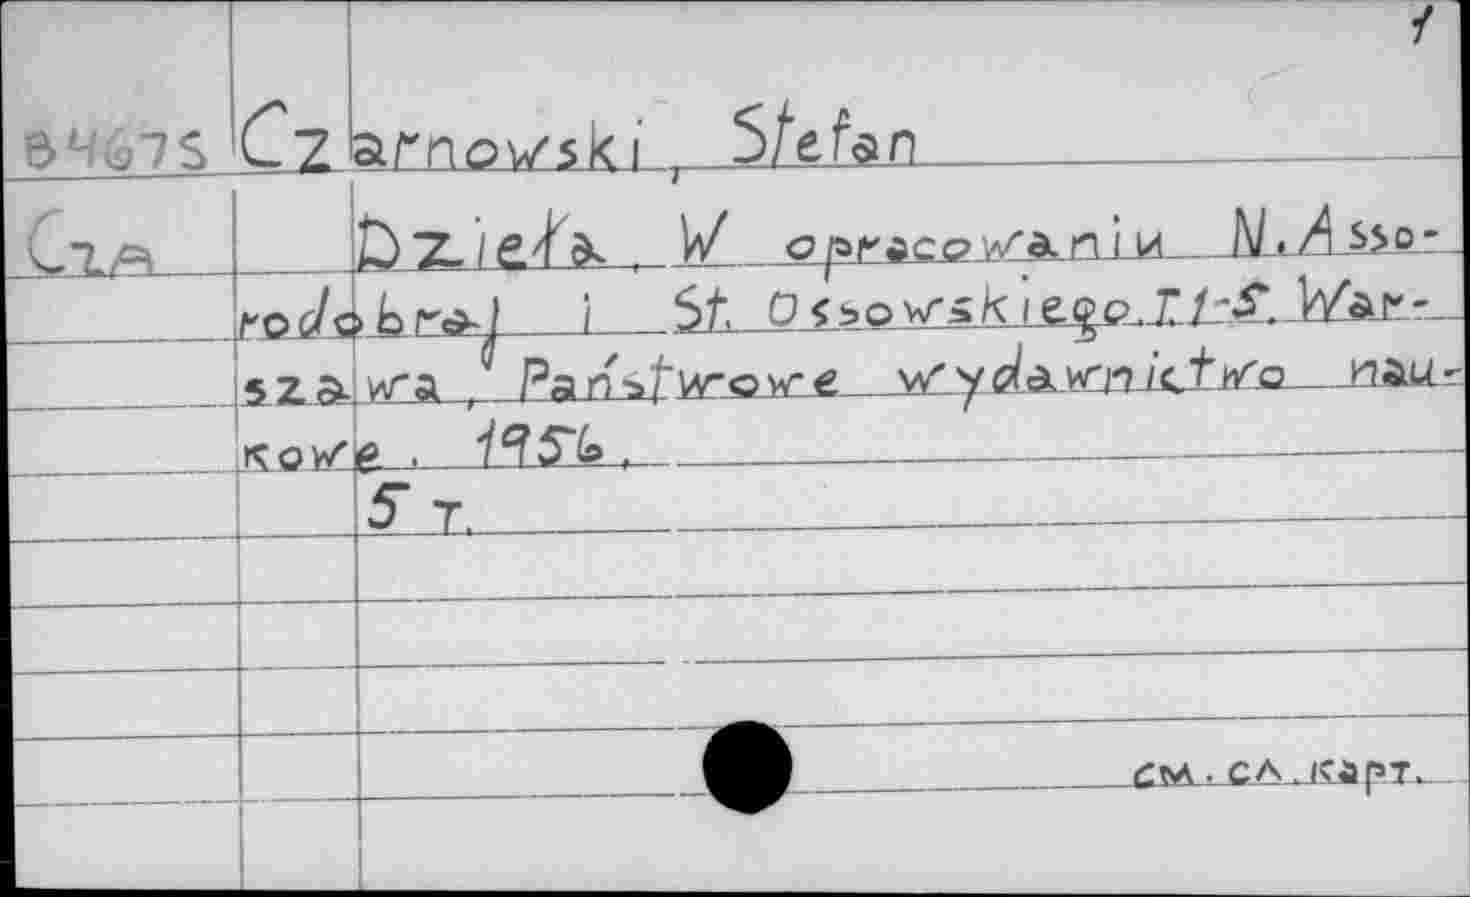 1
В4675 Czarnowski, Stefan
CzA Dzieła. W opracowaniu N. Asso-
rodobraj i St. Ossowskiego. T.1-5. War-
szawa, Państwowe wydawnictwo nau-
kowe. 1956.
5 т.
см. сл. карт.